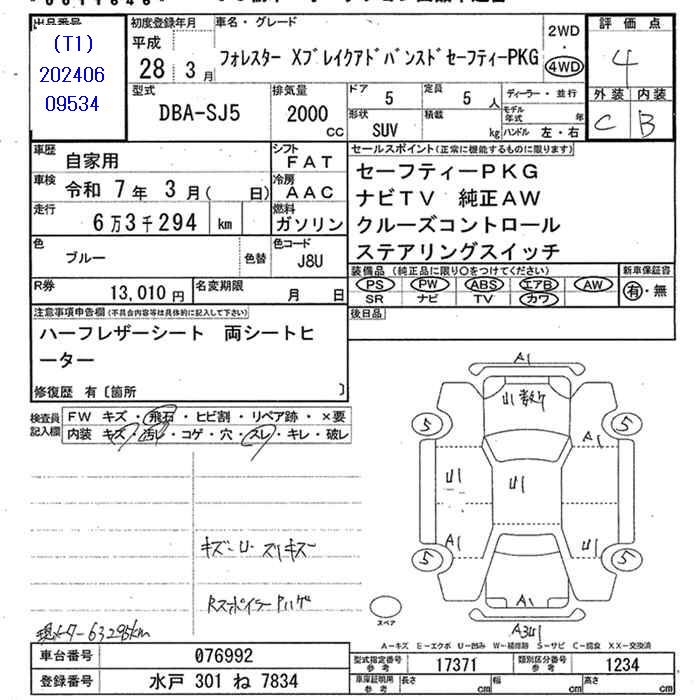 出品番号
(T1)
202406
09534
初度登録年月
平成
28年 3月
車名・グレード
フォレスター XブレイクアドバンスドセーフティーPKG
2WD
・
4WD
評価点
4
外装 内装
C B
型式
DBA-SJ5
排気量
2000
CC
ドア
5
定員
5 人
形状
SUV
積載
kg
ディーラー・並行
モデル年式 年
ハンドル 左・右
車歴
自家用
シフト
FAT
車検
令和 7年 3月( 日)
冷房
AAC
走行
6万3千294 km
燃料
ガソリン
色
ブルー
色替
色コード
J8U
R券
13,010円
名変期限
月 日
セールスポイント(正常に機能するものに限ります)
セーフティーPKG
ナビTV 純正AW
クルーズコントロール
ステアリングスイッチ
装備品(純正品に限り○をつけてください)
PS PW ABS エアB AW
SR ナビ TV カワ
新車保証書
有・無
後日品
注意事項申告欄(不具合内容等は具体的に記入して下さい)
ハーフレザーシート 両シートヒ
ーター
修復歴 有〔箇所 〕
検査員
記入欄
FW キズ・飛石・ヒビ割・リペア跡・×要
内装 キズ・汚レ・コゲ・穴・スレ・キレ・破レ
キズ-U スリキズ-
Rスポイラー Pハゲ
現メタ-63295km
A1
5
5
A1
U1
U1
U1
A1
U1
5
5
A1
スペア
A-キズ E-エクボ U-凹み W-補修跡 S-サビ C-腐食 XX-交換済
車台番号
076992
登録番号
水戸 301 ね 7834
型式指定番号
参考
17371
類別区分番号
参考
1234
車庫証明用
参考
長さ cm
幅 cm
高さ cm